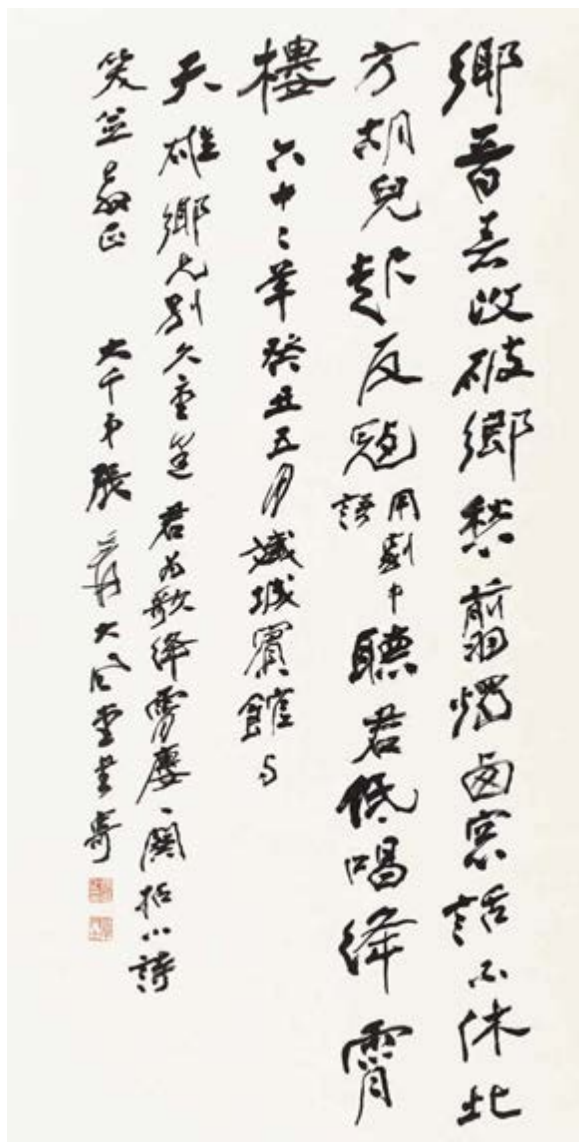 鄉音破鄉愁翦燭西窗話不休北
方胡兒起反寇用劇中語聽君低唱絳霄
樓 六十二年癸丑五月城賓館與
天雄鄉兄別久重逢君為歌絳霄樓一闋拈小詩
笑並教正 大千弟張爰大風堂書寄